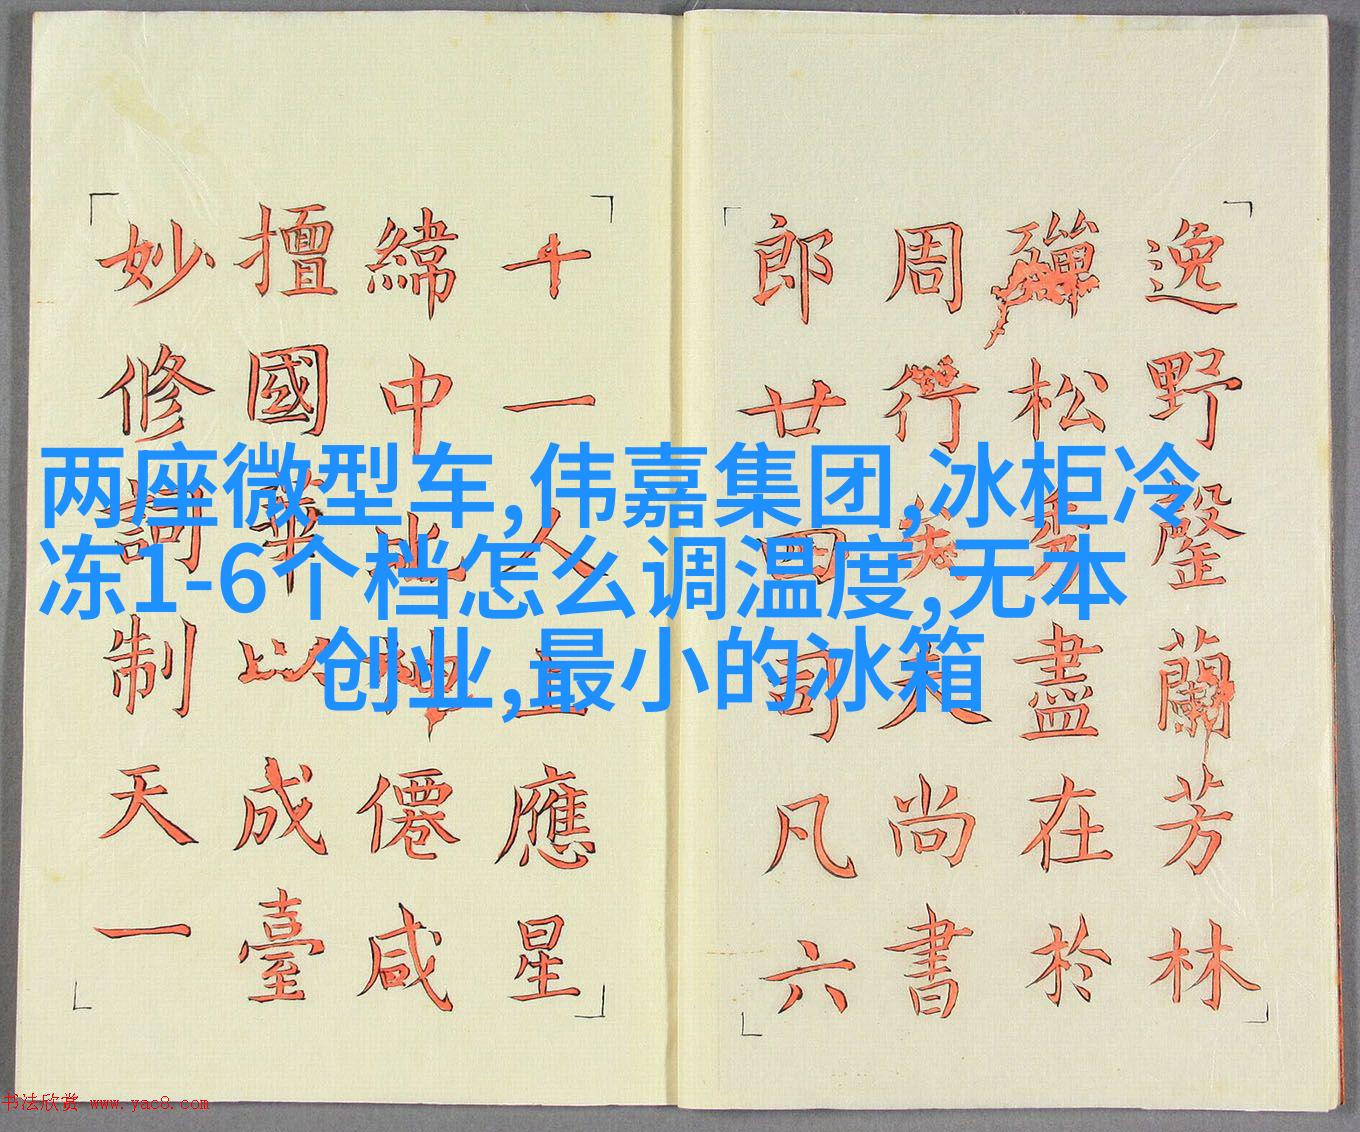 两座微型车,伟嘉集团,冰柜冷
冻1-6个档怎么调温度,无本
创业,最小的冰箱
逸野罄蘭芳林
殫松秀盡在於
周行矣夫尚書
郎廿四司凡六
十一人上應星
緯中比神僊咸
擅國華以成臺
妙修詞制天一
书法欣赏 www.yac8.com